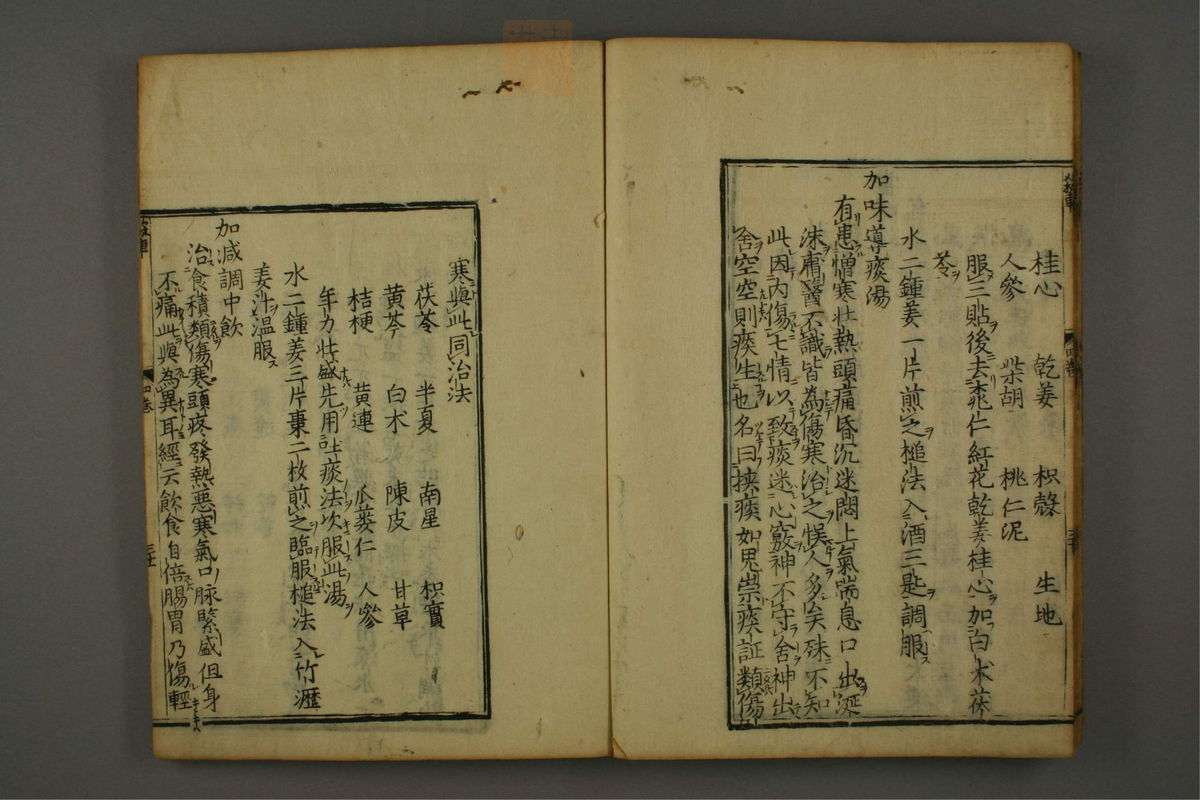 桂心 乾姜 枳殼 生地
人參 柴胡 桃仁泥
服三貼後去桃仁紅花乾姜桂心加白朮茯
苓
水二鍾姜一片煎之槌法入酒三匙調服
加味導痰湯
有患憎寒壮熱頭痛昏沉迷悶上氣喘息口出涎
沫庸醫不識皆為傷寒治之悮人多矣殊不知
此因内傷七情以致痰迷心竅神不守舍神出
舍空空則痰生也名曰挟痰如鬼祟痰証類傷
寒與此同治法
茯苓 半夏 南星 枳實
黄芩 白朮 陳皮 甘草
桔梗 黄連 瓜蔞仁 人參
年力壮盛先用吐痰法次服此湯
水二鍾姜三片棗二枚煎之臨服槌法入竹瀝
姜汁温服
加減調中飲
治食積類傷寒頭疼發熱惡寒氣口脉緊盛但身
不痛此與為異耳經云飲食自倍腸胃乃傷輕
四卷